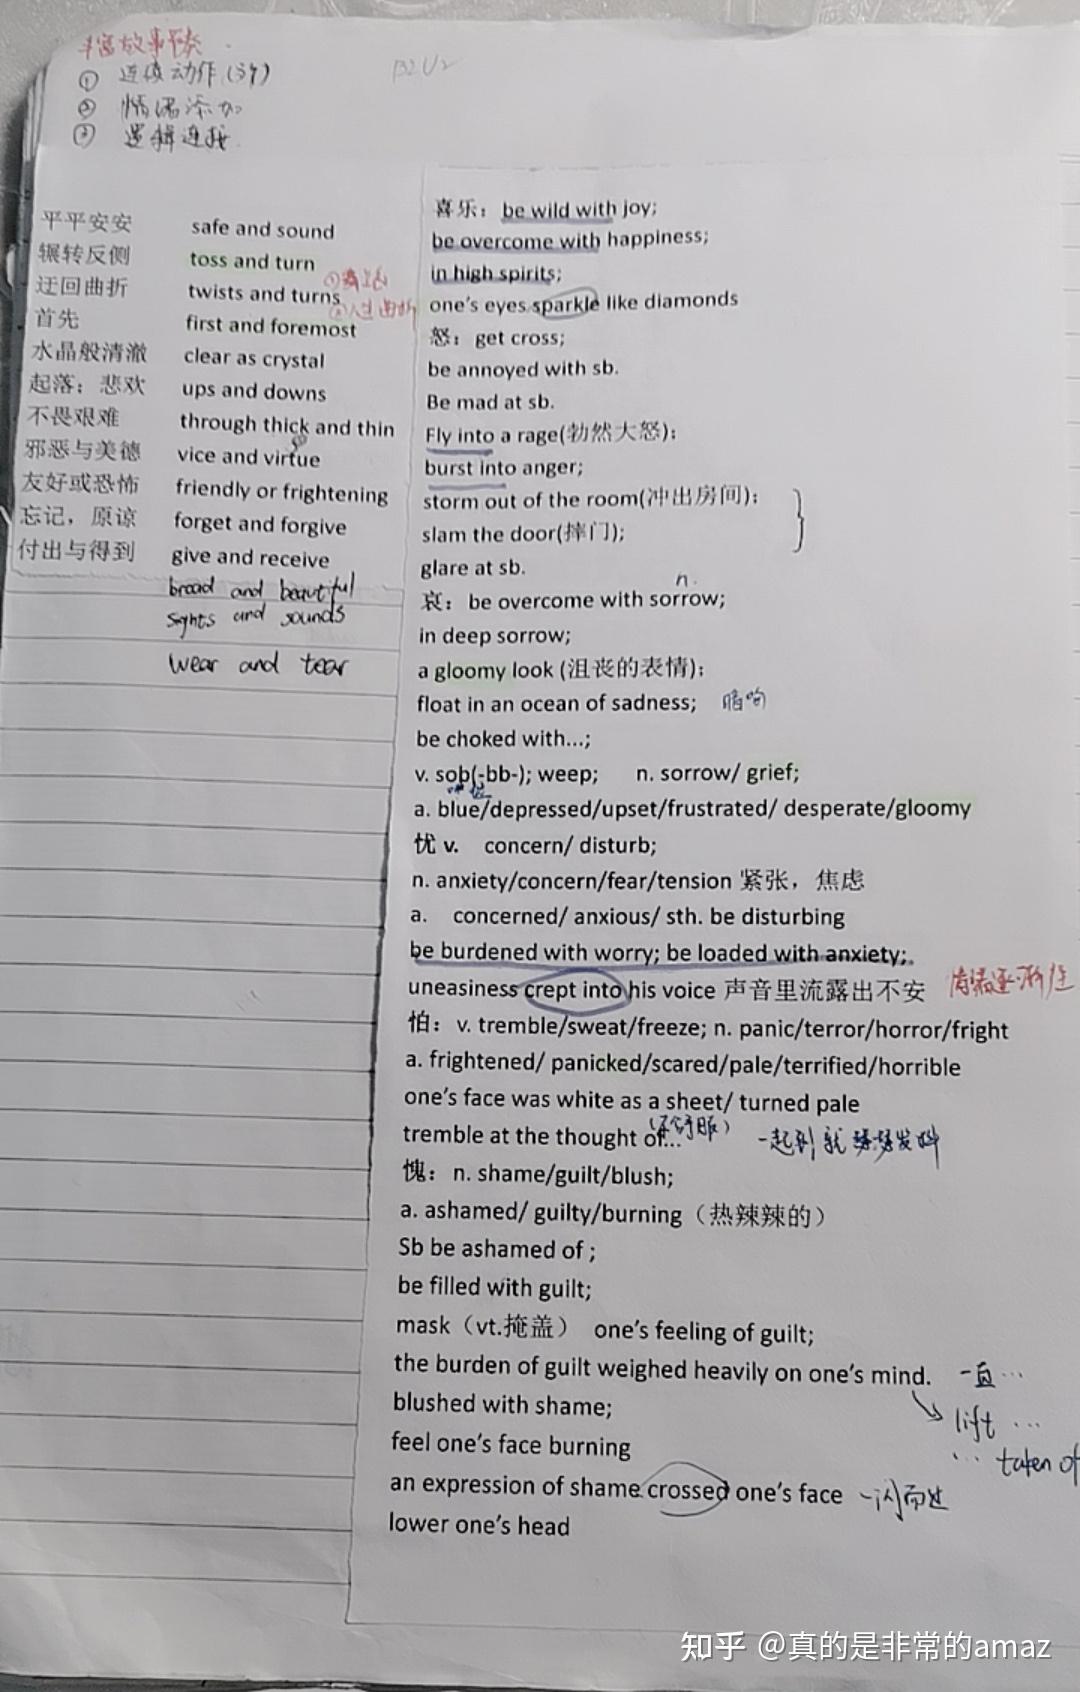 丰富故事节奏
① 连续动作(3个)
② 情绪添加
③ 逻辑连接
B2U2
平平安安 safe and sound
辗转反侧 toss and turn
迂回曲折 twists and turns
②人生曲折
首先 first and foremost
水晶般清澈 clear as crystal
起落；悲欢 ups and downs
不畏艰难 through thick and thin
邪恶与美德 vice and virtue
友好或恐怖 friendly or frightening
忘记，原谅 forget and forgive
付出与得到 give and receive
broad and beautiful
sights and sounds
wear and tear
喜乐：be wild with joy;
be overcome with happiness;
in high spirits;
one's eyes sparkle like diamonds
怒：get cross;
be annoyed with sb.
Be mad at sb.
Fly into a rage(勃然大怒);
burst into anger;
storm out of the room(冲出房间);
slam the door(摔门);
glare at sb.
n.
哀：be overcome with sorrow;
in deep sorrow;
a gloomy look (沮丧的表情);
float in an ocean of sadness; 暗喻
be choked with...;
v. sob(-bb-); weep; n. sorrow/ grief;
a. blue/depressed/upset/frustrated/ desperate/gloomy
忧 v. concern/ disturb;
n. anxiety/concern/fear/tension 紧张，焦虑
a. concerned/ anxious/ sth. be disturbing
be burdened with worry; be loaded with anxiety;
uneasiness crept into his voice 声音里流露出不安
怕：v. tremble/sweat/freeze; n. panic/terror/horror/fright
a. frightened/ panicked/scared/pale/terrified/horrible
one's face was white as a sheet/ turned pale
(不舒服)
tremble at the thought of... 一起到就瑟瑟发抖
愧：n. shame/guilt/blush;
a. ashamed/ guilty/burning（热辣辣的）
Sb be ashamed of ;
be filled with guilt;
mask（vt.掩盖） one's feeling of guilt;
the burden of guilt weighed heavily on one's mind. 一直…
lift …
… taken of
blushed with shame;
feel one's face burning
an expression of shame crossed one's face 一闪而过
lower one's head
知乎 @真的是非常的amaz